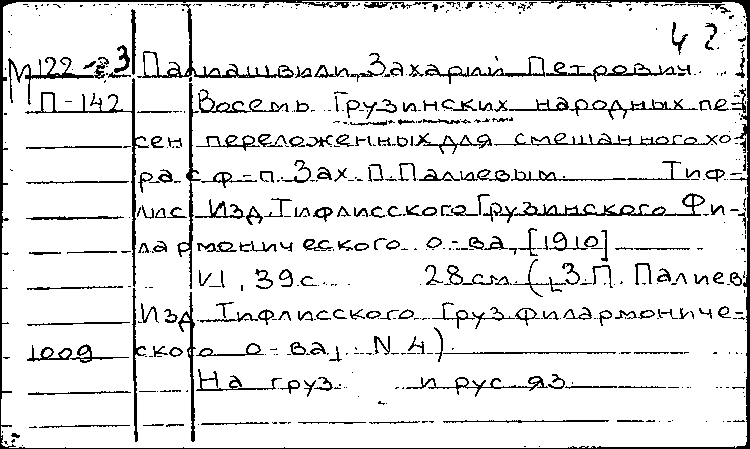 42
М 122-23 Палиашвили, Захарий Петрович
П-142 Восемь Грузинских народных пе-
сен переложенных для смешанного хо-
ра с ф-п. Зах. П. Палиевым. Тиф-
лис Изд. Тифлисского Грузинского Фи-
лармонического о-ва, [1910]
VI, 39 с. 28 см. (З. П. Палиев
Изд Тифлисского Груз филармониче-
1009 ского о-ва, N 4).
На груз. и рус яз